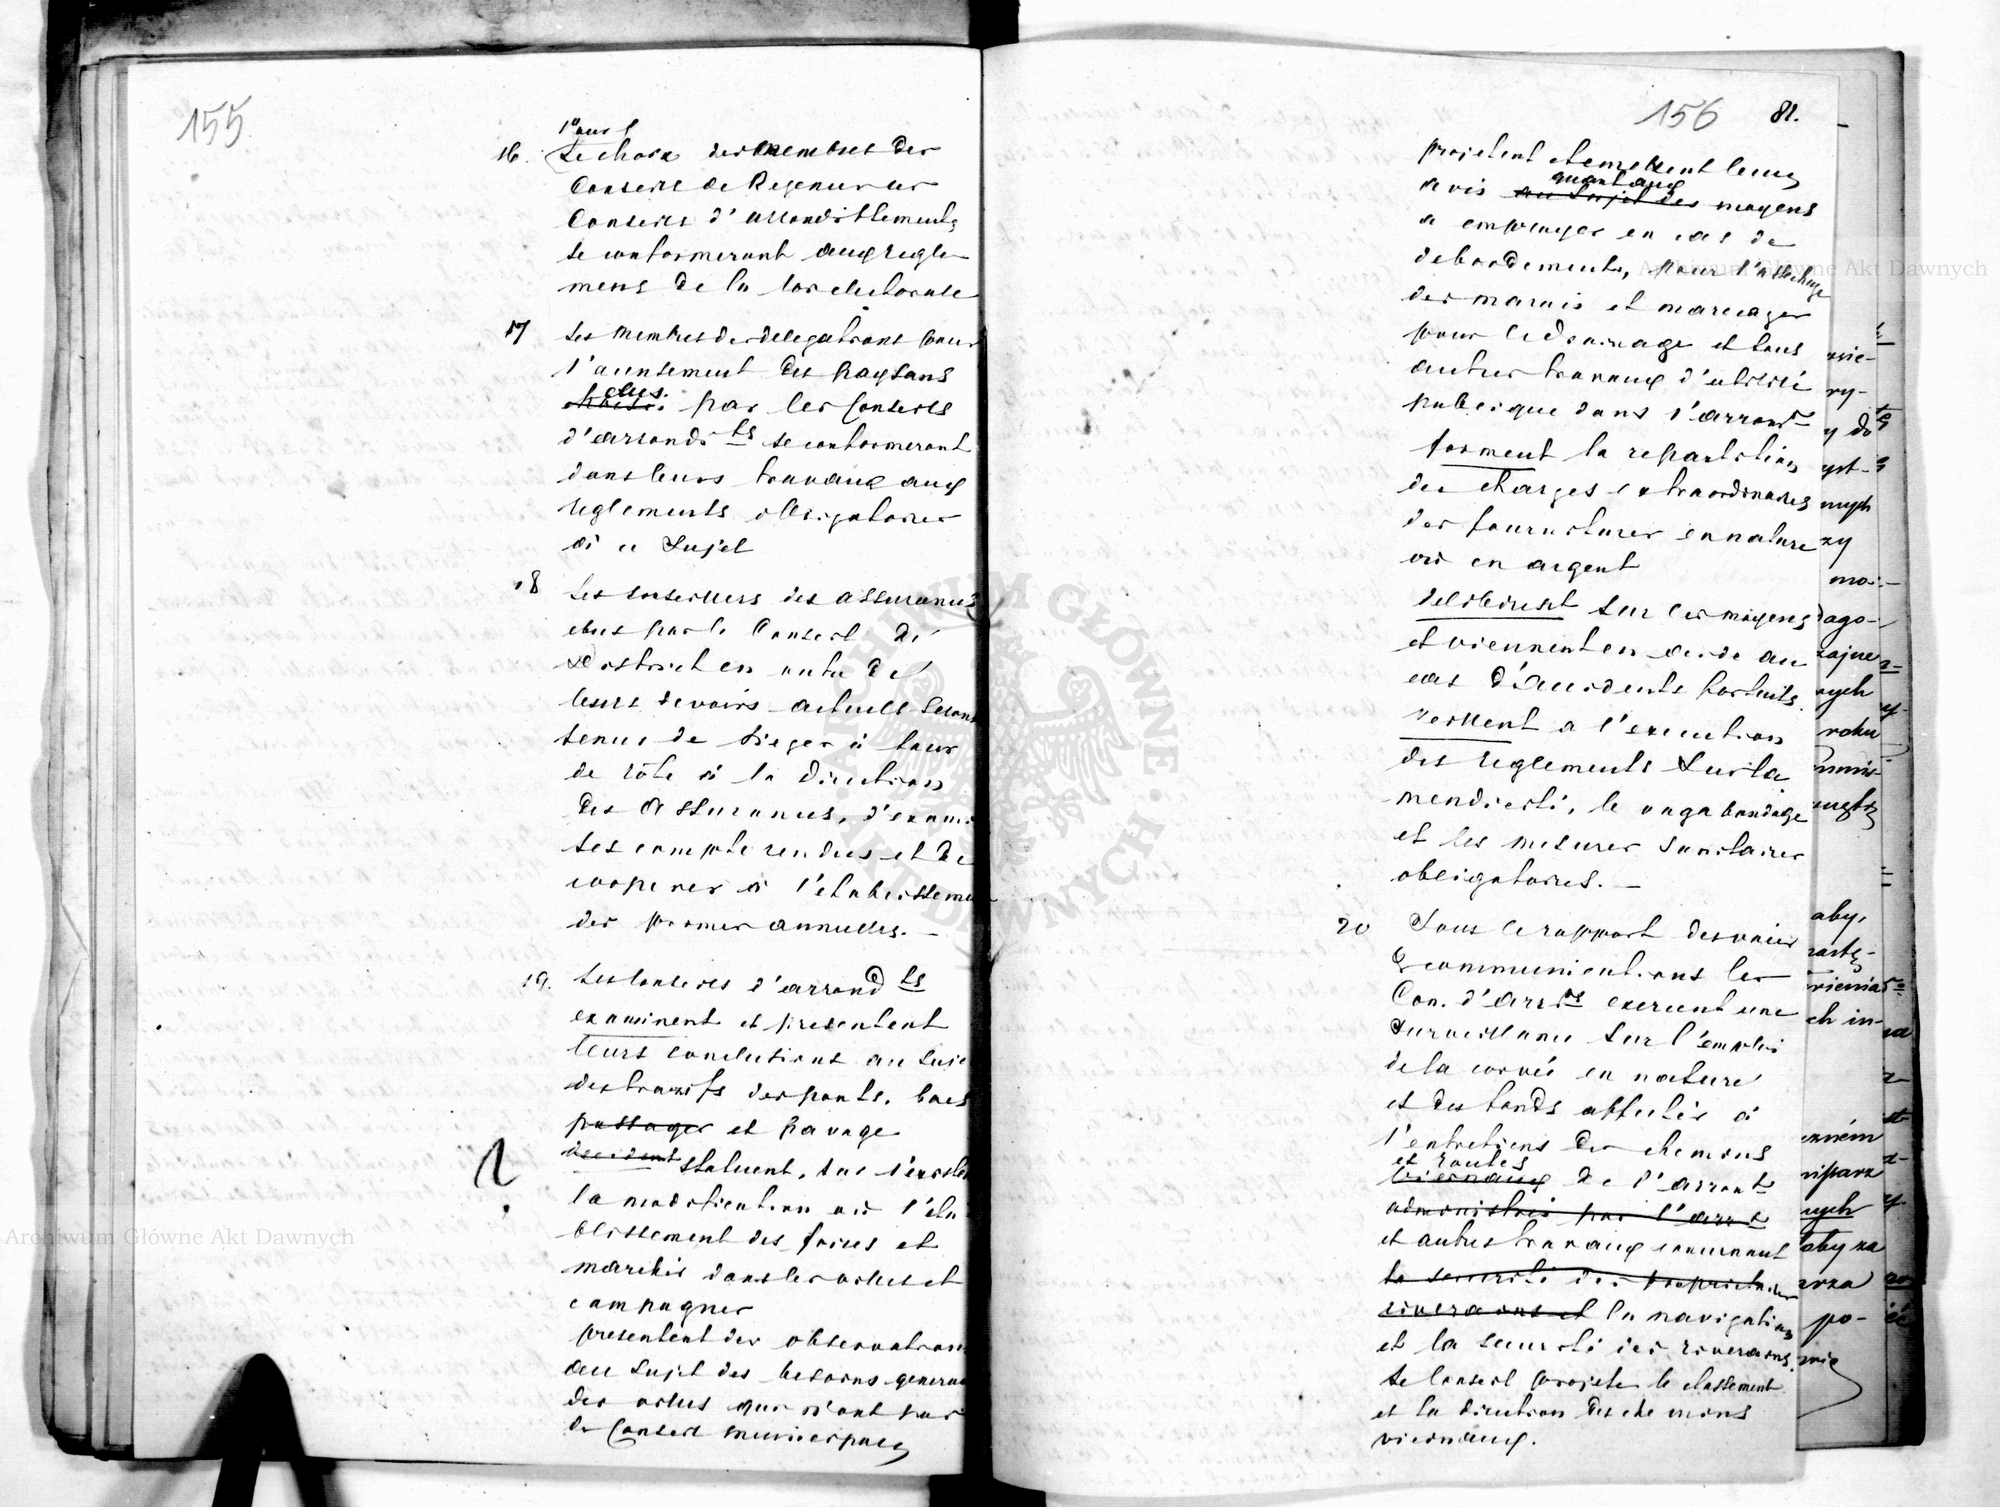 155
Pour l
16. Le choix des membres des
Conseils de Regence et
Conseils d'arrondissements
se conformeront aux regle-
mens de la loi electorale
17 Les membres des delegations pour
l'acensement des paysans
choisis elus par les conseils
d'arrondi ts se conformeront
dans leurs travaux aux
reglements obligatoires
à ce sujet
18 Les conseillers des assurances
elus par le Conseil de
District en outre de
leurs devoirs actuels seront
tenus de sieger à tour
de rôle à la Direction
des Assurances, d'exami
ses compte rendus et de
cooperer à l'etablisseme
des primes annuelles. —
19. Les conseils d'arrond ts
examinent et presentent
leurs conclusions au suje
des tarifs des ponts, bacs
passages et pavage
decident statuent, sur l'existe
la modification ou l'eta
blissement des foires et
marchés dans les villes et
campagnes
presentent des observations
au sujet des besoins generau
des villes qui n'ont pas
de Conseil municipaux
156 81.
projetent et emettent leurs
avis au sujet des quant aux moyens
a employer en cas de
debordements, pour l'assechage
des marais et marecages
pour le drainage et tous
autres travaux d'utilité
publique dans l'arrondt
forment la repartition
des charges extraordinaires
des fournitures en nature
ou en argent
deliberent sur les moyens
et viennent en aide au
cas d'accidents fortuits.
veillent a l'execution
des reglements sur la
mendicité, le vagabondage
et les mesures sanitaires
obligatoires. —
20 Sous le rapport des voies
de communications les
Con. d'arrts exercent une
surveillance sur l'emploi
de la corvée en nature
et des fonds affectés à
l'entretiens des chemins
et routes
vicinaux de l'arrondt
administrés par l'arrt
et autres travaux concernant
la securité des proprietaires
riverains et la navigation
et la securité des riverains.
Le Conseil projete le classement
et la direction des chemins
vicinaux.
Archiwum Główne Akt Dawnych
Archiwum Główne Akt Dawnych
ARCHIWUM GŁÓWNE · AKT DAWNYCH ·